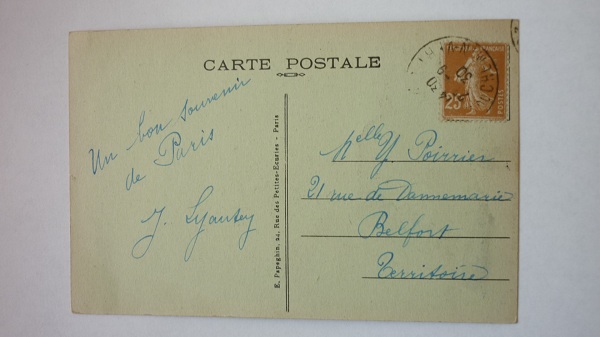 CARTE POSTALE
Un bon souvenir
de Paris
J. Lyautey
E. Papeghin, 24, Rue des Petites-Ecuries - Paris
25
POSTES
Melle Y Poirrier
21 rue de Dannemarie
Belfort
Territoire